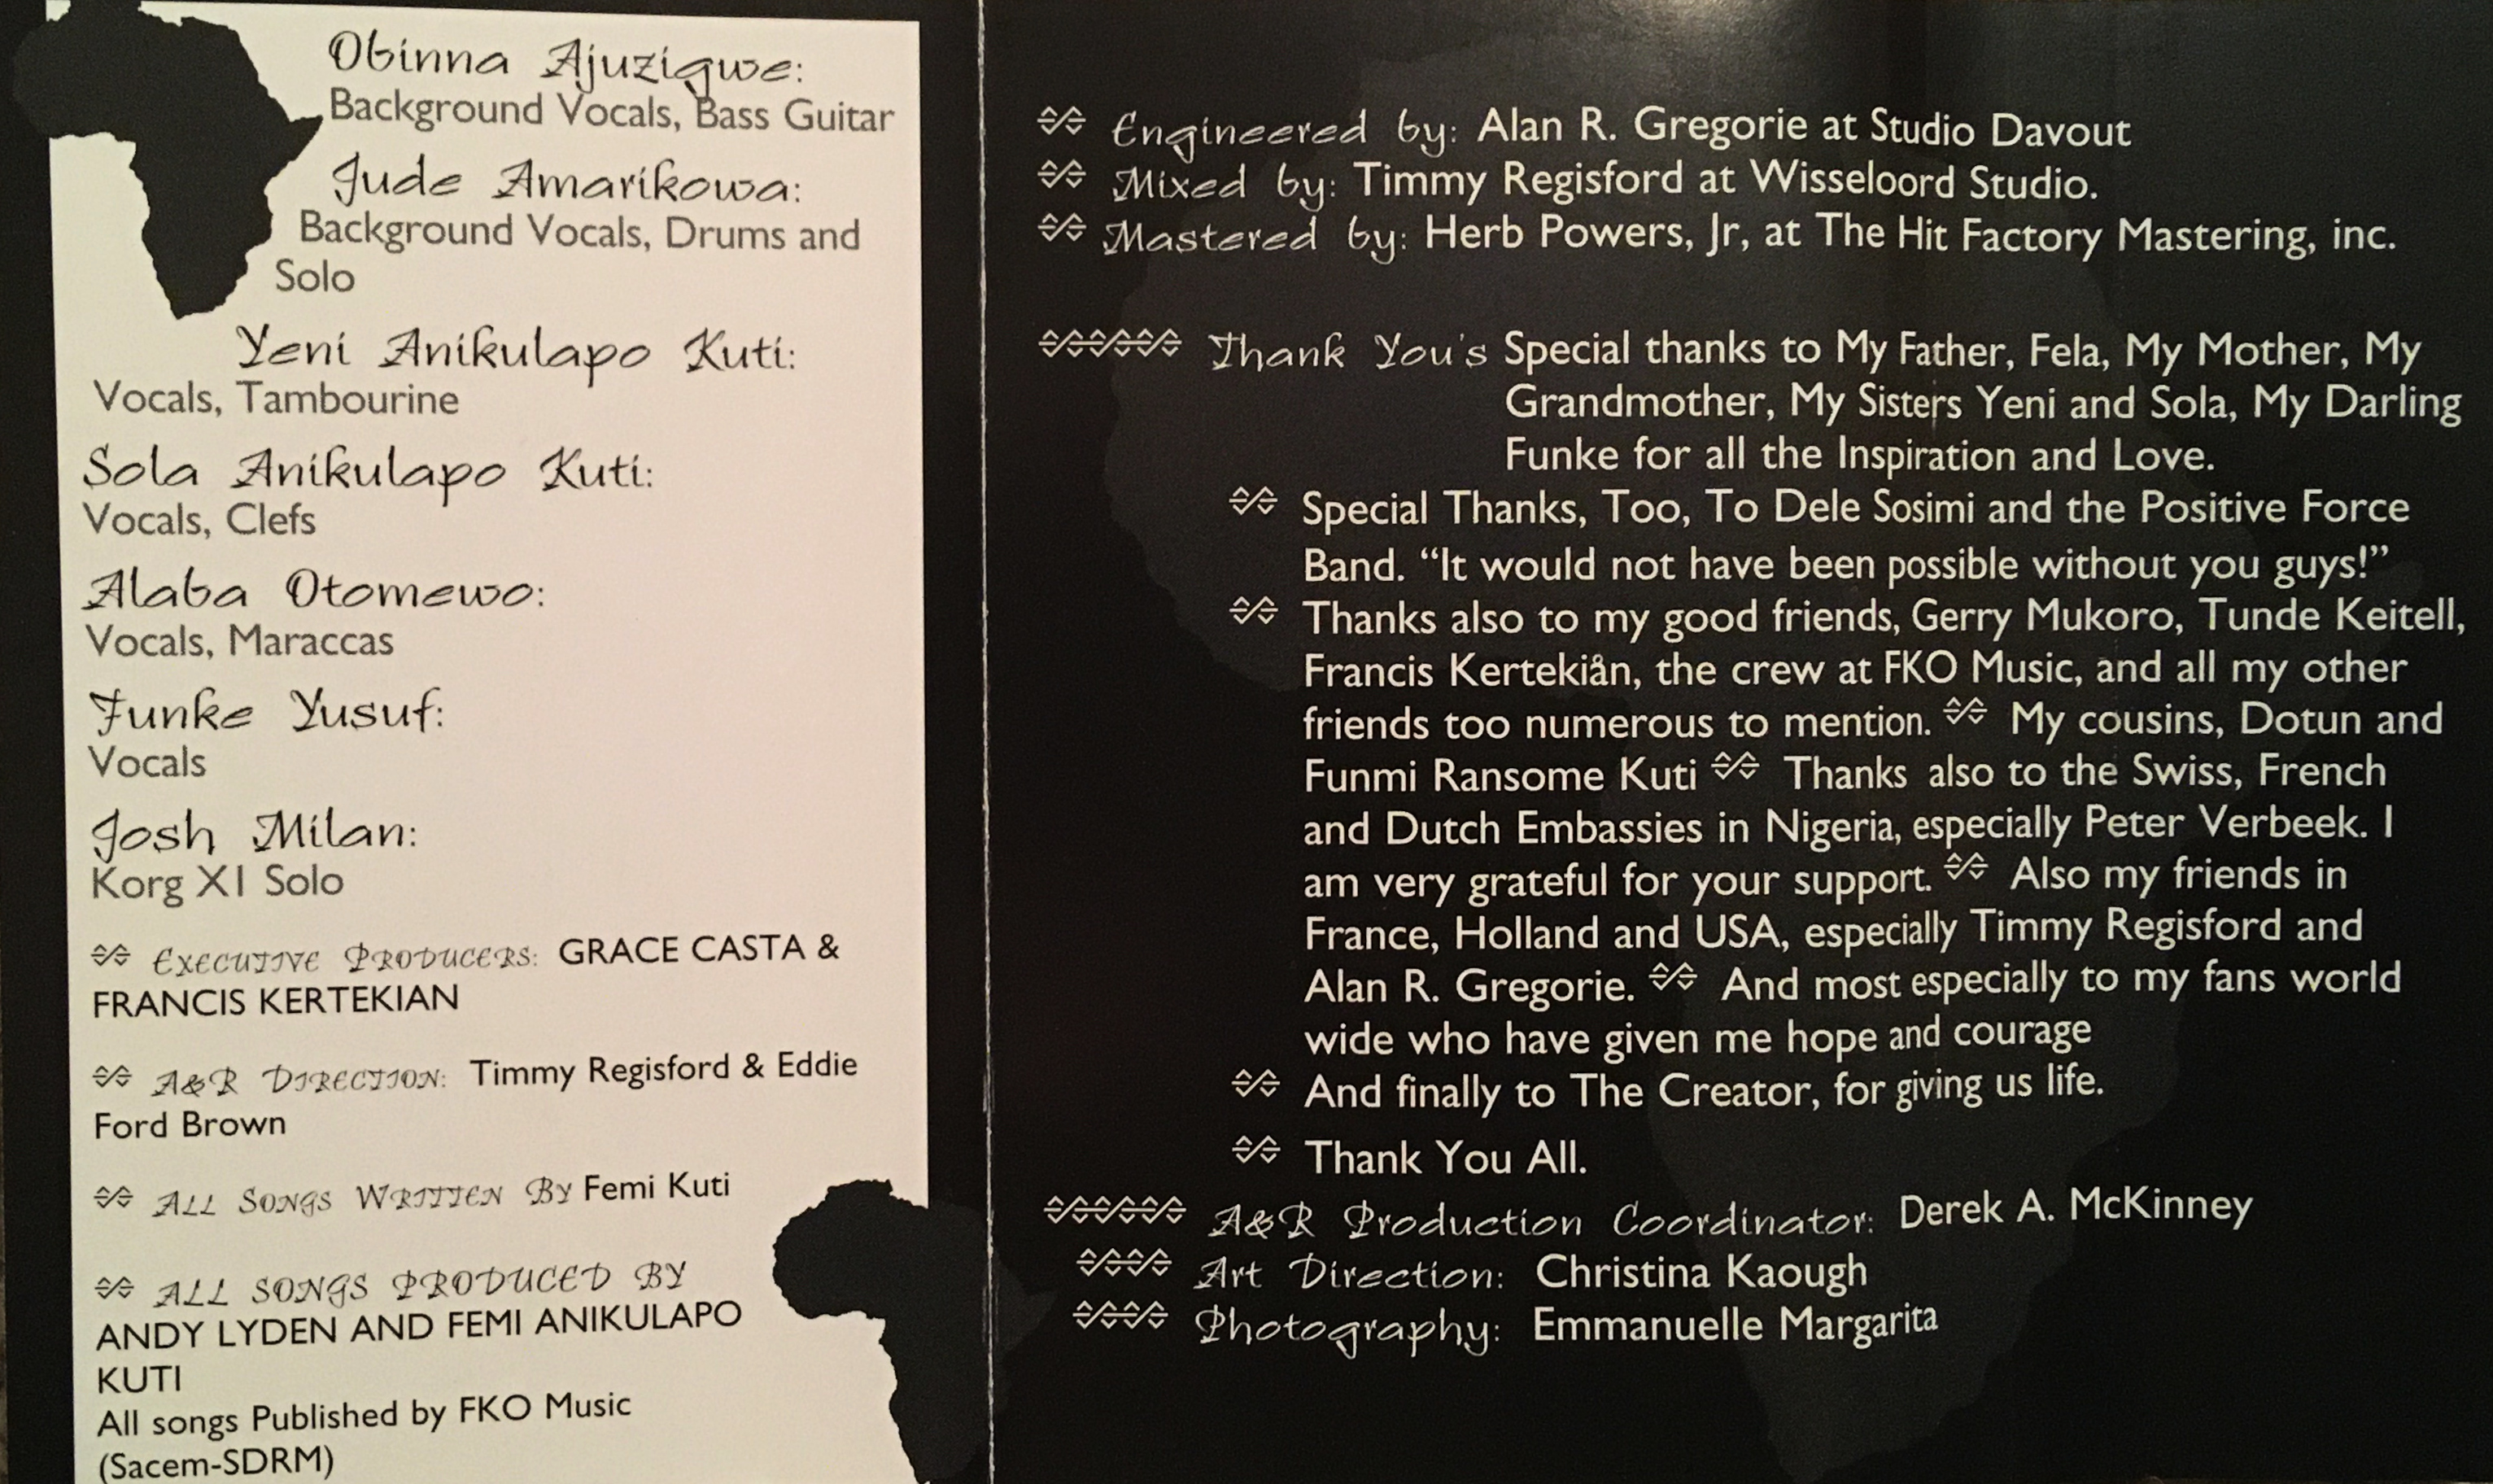 Obinna Ajuzigwe:
Background Vocals, Bass Guitar
Jude Amarikowa:
Background Vocals, Drums and
Solo
Yeni Anikulapo Kuti:
Vocals, Tambourine
Sola Anikulapo Kuti:
Vocals, Clefs
Alaba Otomewo:
Vocals, Maraccas
Funke Yusuf:
Vocals
Josh Milan:
Korg X1 Solo
EXECUTIVE PRODUCERS: GRACE CASTA &
FRANCIS KERTEKIAN
A&R DIRECTION: Timmy Regisford & Eddie
Ford Brown
ALL SONGS WRITTEN BY Femi Kuti
ALL SONGS PRODUCED BY
ANDY LYDEN AND FEMI ANIKULAPO
KUTI
All songs Published by FKO Music
(Sacem-SDRM)
Engineered by: Alan R. Gregorie at Studio Davout
Mixed by: Timmy Regisford at Wisseloord Studio.
Mastered by: Herb Powers, Jr, at The Hit Factory Mastering, inc.
Thank You's Special thanks to My Father, Fela, My Mother, My
Grandmother, My Sisters Yeni and Sola, My Darling
Funke for all the Inspiration and Love.
Special Thanks, Too, To Dele Sosimi and the Positive Force
Band. “It would not have been possible without you guys!”
Thanks also to my good friends, Gerry Mukoro, Tunde Keitell,
Francis Kertekiån, the crew at FKO Music, and all my other
friends too numerous to mention. My cousins, Dotun and
Funmi Ransome Kuti Thanks also to the Swiss, French
and Dutch Embassies in Nigeria, especially Peter Verbeek. I
am very grateful for your support. Also my friends in
France, Holland and USA, especially Timmy Regisford and
Alan R. Gregorie. And most especially to my fans world
wide who have given me hope and courage
And finally to The Creator, for giving us life.
Thank You All.
A&R Production Coordinator: Derek A. McKinney
Art Direction: Christina Kaough
Photography: Emmanuelle Margarita